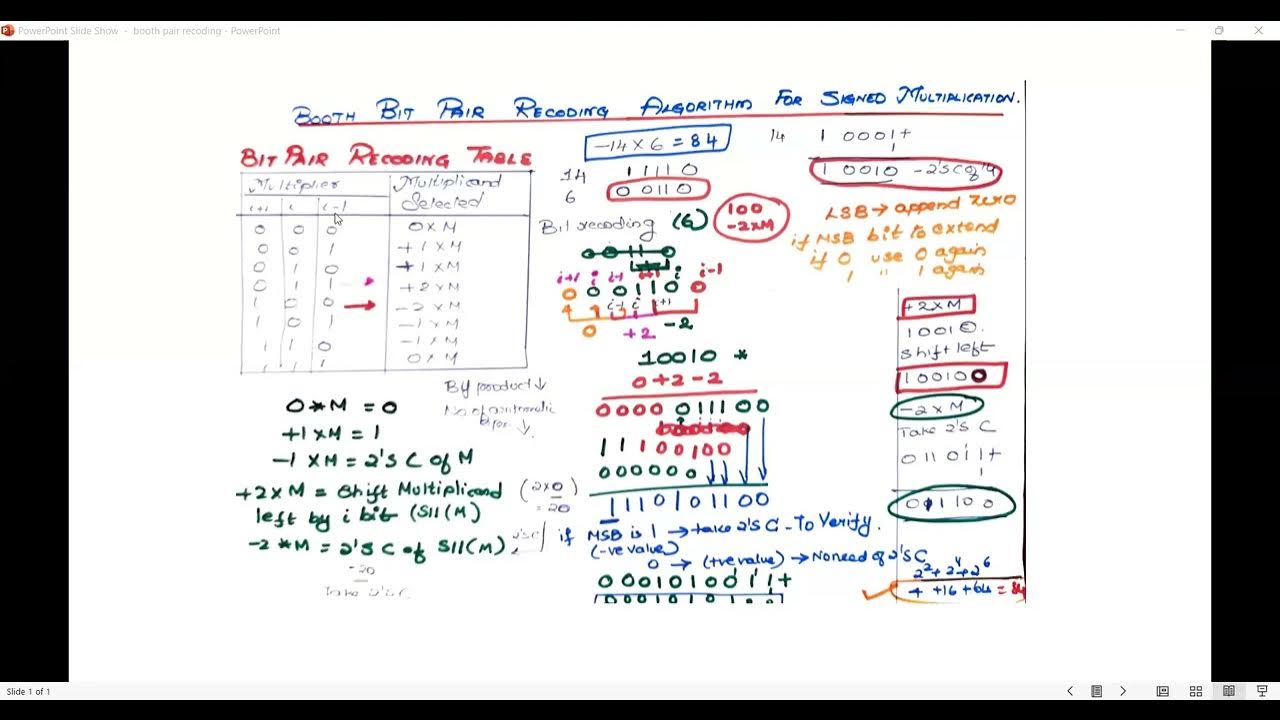 PowerPoint Slide Show - booth pair recoding - PowerPoint
BOOTH BIT PAIR RECODING ALGORITHM FOR SIGNED MULTIPLICATION.
BIT PAIR RECODING TABLE
Multiplier Multiplicand Selected
i+1 i i-1
0 0 0 0×M
0 0 1 +1×M
0 1 0 +1×M
0 1 1 +2×M
1 0 0 -2×M
1 0 1 -1×M
1 1 0 -1×M
1 1 1 0×M
0*M = 0
+1×M = 1
-1×M = 2'S C of M
+2×M = Shift Multiplicand
left by i bit (Sll(M)
-2*M = 2'S C of Sll(M)
-20
Take 2'S C
By product ↓
(2×0)
= 20
-14×6 = 84
14 1 1 1 1 0
6 0 0 1 1 0
Bit recoding (6)
100
-2×M
i+1 i i-1 i+1 i i-1
0 0 0 1 1 0 0
i-1 i i+1
0 +2 -2
10010 *
0 +2 -2
0000 011100
11100100
000000
1110101100
if MSB is 1 → take 2'S C - To Verify.
(-ve value)
0 → (+ve value) → No need of 2'S C
0001010011+
14 1 0001+
1
1 0010 - 2'S C of 14
LSB → append zero
if MSB bit to extend
if 0 use 0 again
1 " 1 again
+2×M
10010.
Shift left
100100
-2×M
Take 2'S C
011011+
1
011100
2² + 2⁴ + 2⁶
4 + 16 + 64 = 84
Slide 1 of 1